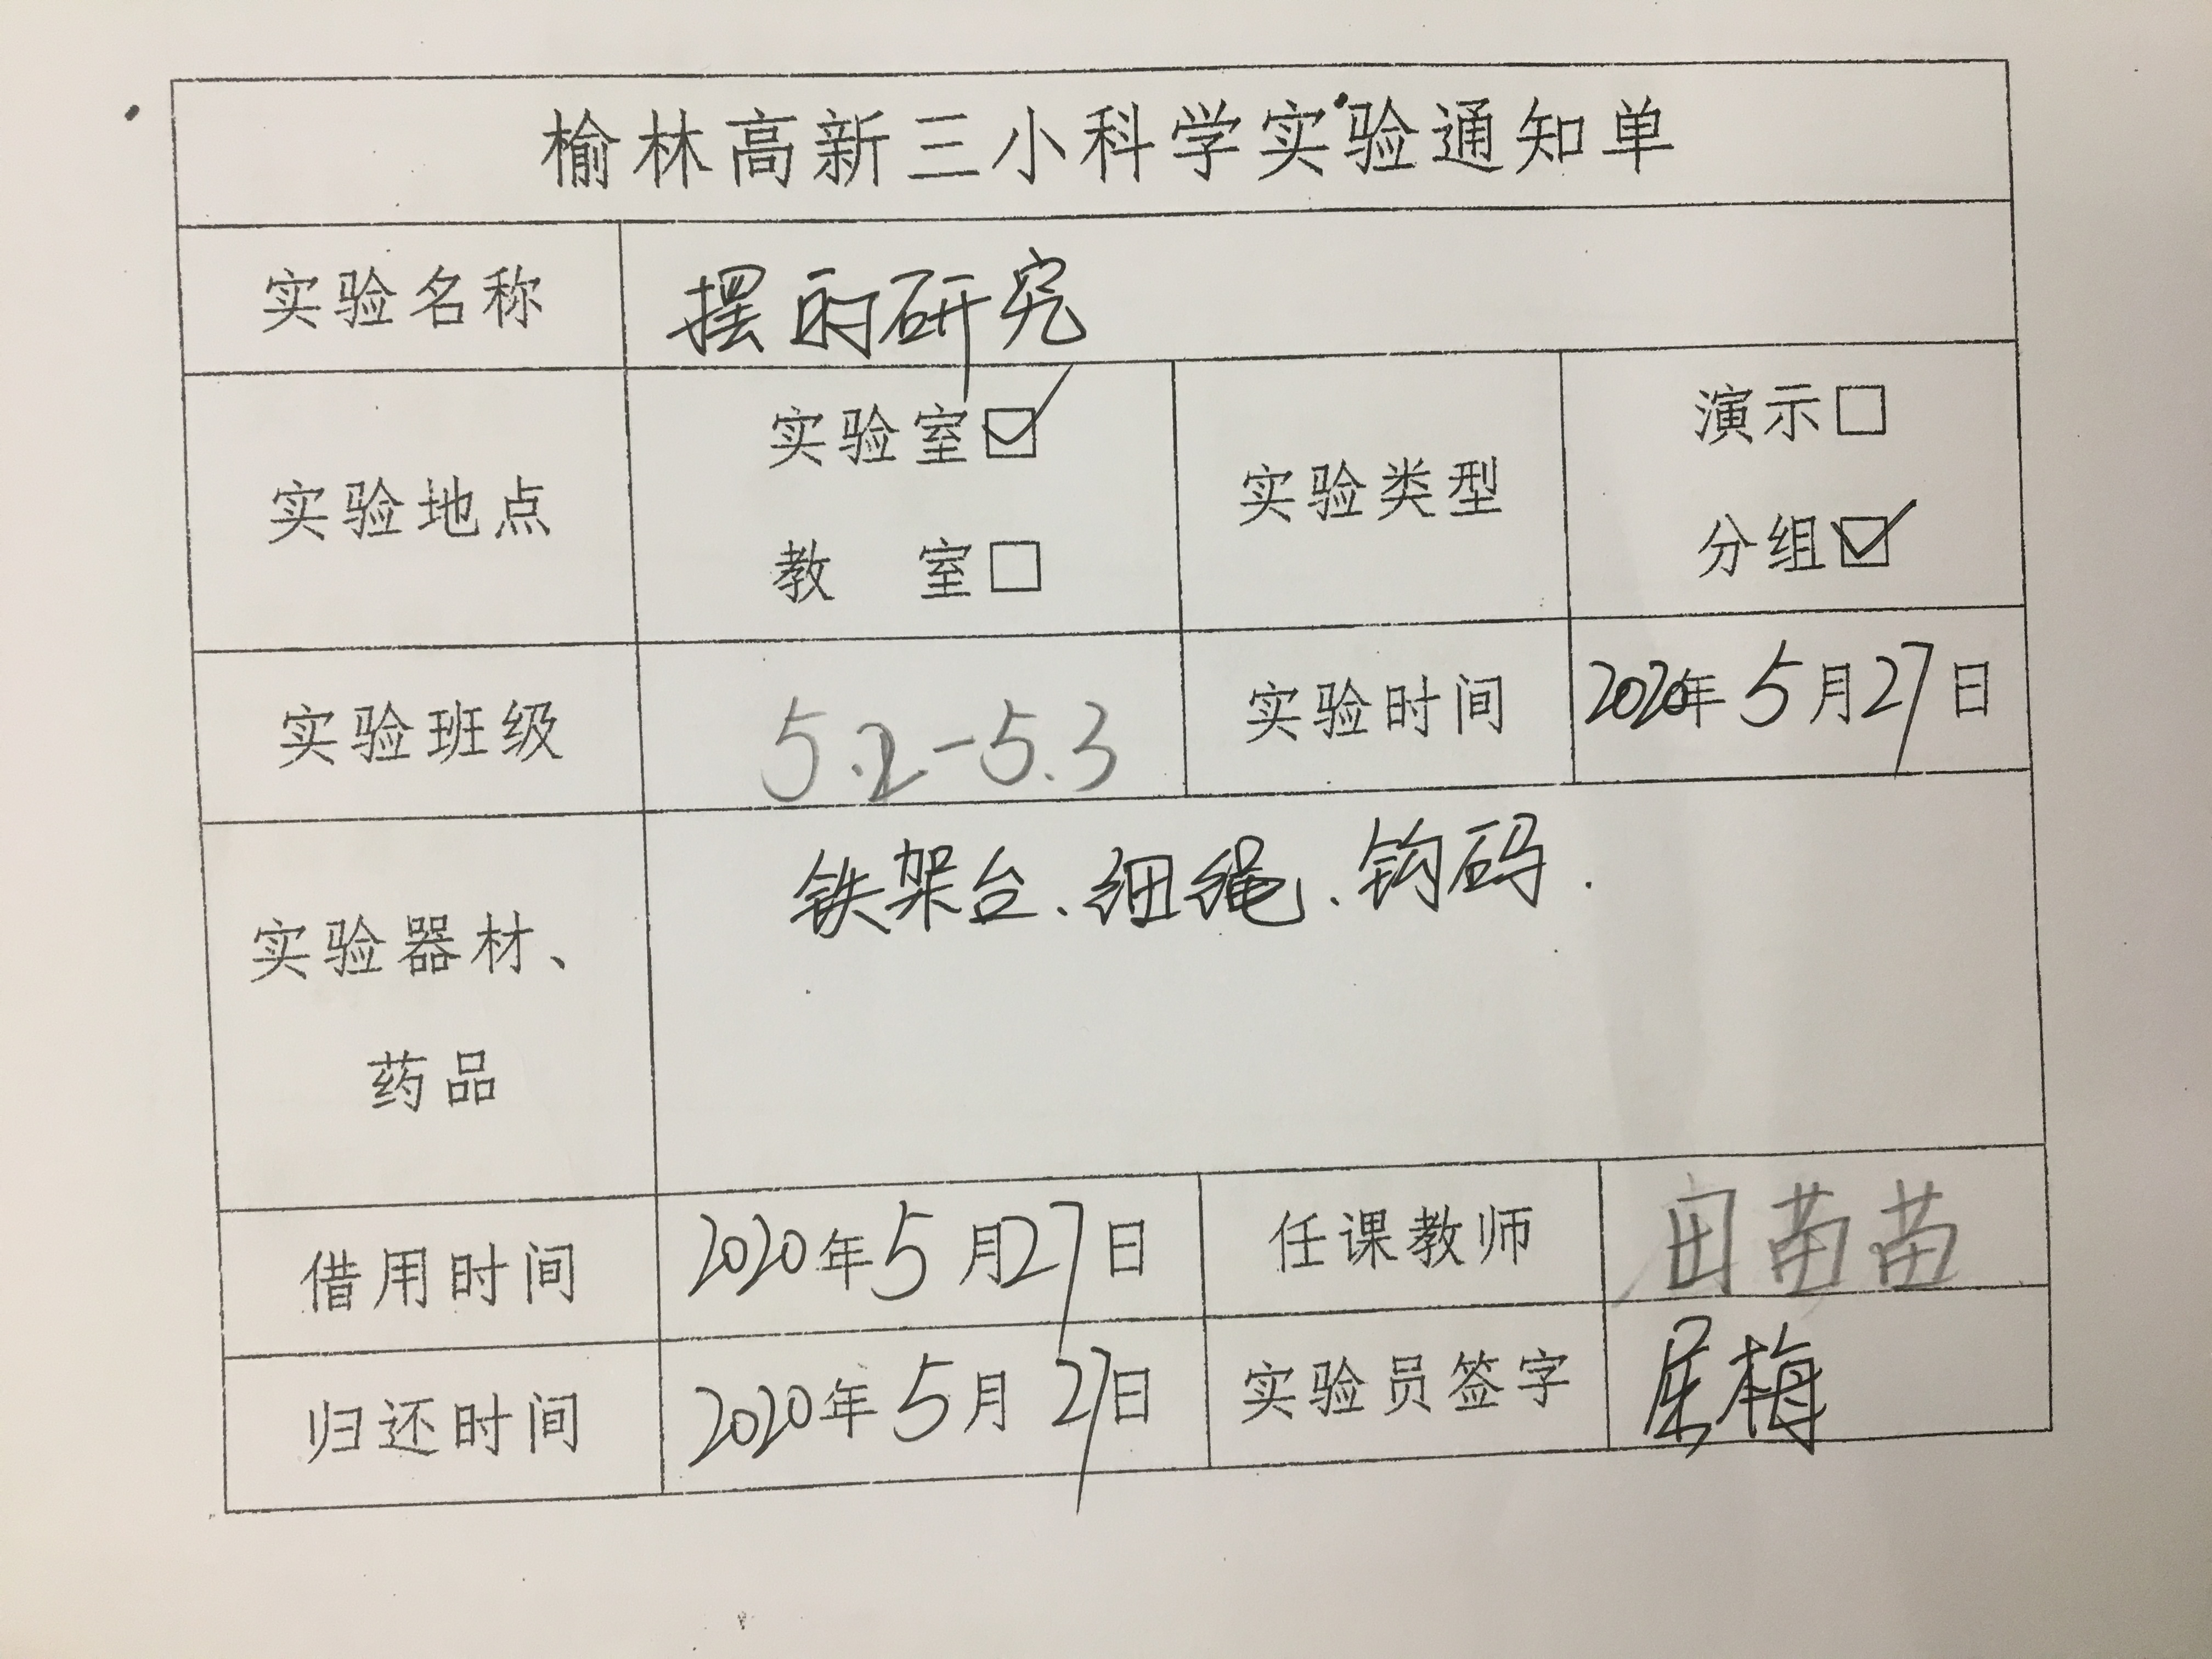 榆林高新三小科学实验通知单
实验名称 摆的研究
实验地点 实验室☑ 实验类型 演示□
教 室□ 分组☑
实验班级 5.2-5.3 实验时间 2020年5月27日
实验器材、 铁架台、细绳、钩码.
药品
借用时间 2020年5月27日 任课教师 田苗苗
归还时间 2020年5月27日 实验员签字 屈梅